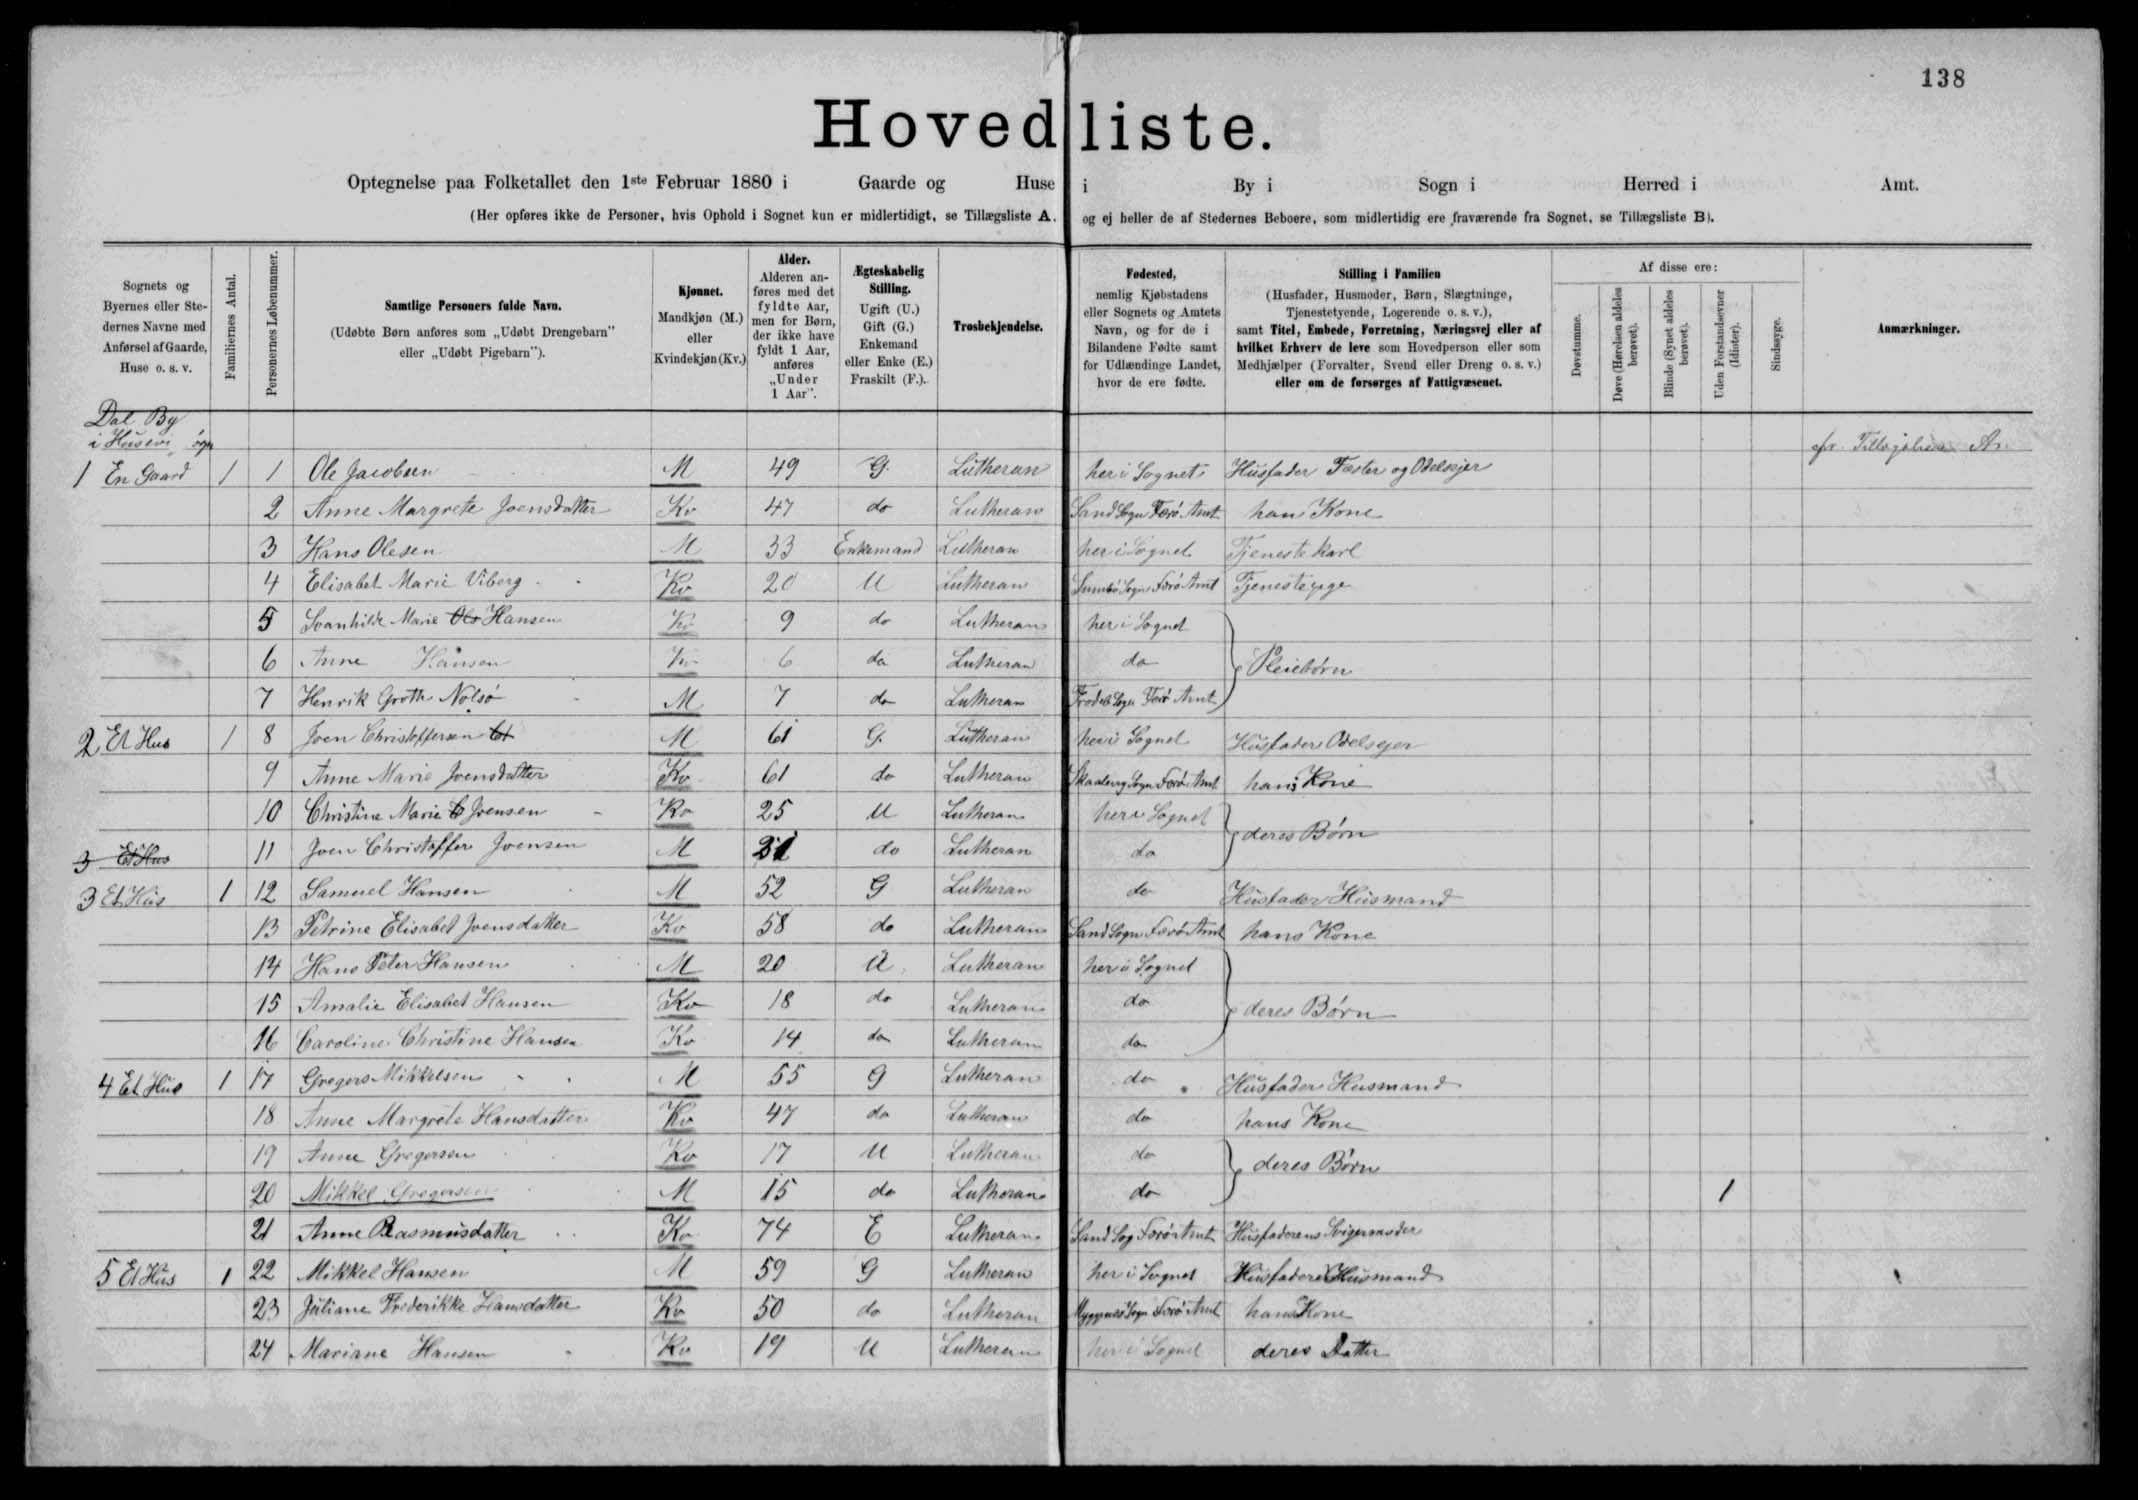 138
Hovedliste.
Optegnelse paa Folketallet den 1ste Februar 1880 i Gaarde og Huse i By i Sogn i Herred i Amt.
(Her opføres ikke de Personer, hvis Ophold i Sognet kun er midlertidigt, se Tillægsliste A. og ej heller de af Stedernes Beboere, som midlertidig ere fraværende fra Sognet, se Tillægsliste B).
Sognets og Byernes eller Stedernes Navne med Anførsel af Gaarde, Huse o. s. v.
Familiernes Antal.
Personernes Løbenummer.
Samtlige Personers fulde Navn.
(Udøbte Børn anføres som „Udøbt Drengebarn" eller „Udøbt Pigebarn").
Kjønnet.
Mandkjøn (M.) eller Kvindekjøn (Kv.)
Alder.
Alderen anføres med det fyldte Aar, men for Børn, der ikke have fyldt 1 Aar, anføres „Under 1 Aar".
Ægteskabelig Stilling.
Ugift (U.) Gift (G.) Enkemand eller Enke (E.) Fraskilt (F.).
Trosbekjendelse.
Fødested,
nemlig Kjøbstadens eller Sognets og Amtets Navn, og for de i Bilandene Fødte samt for Udlændinge Landet, hvor de ere fødte.
Stilling i Familien
(Husfader, Husmoder, Børn, Slægtninge, Tjenestetyende, Logerende o. s. v.), samt Titel, Embede, Forretning, Næringsvej eller af hvilket Erhverv de leve som Hovedperson eller som Medhjælper (Forvalter, Svend eller Dreng o. s. v.) eller om de forsørges af Fattigvæsenet.
Af disse ere:
Døvstumme.
Døve (Hørelsen aldeles berøvet).
Blinde (Synet aldeles berøvet).
Uden Forstandsevner (Idioter).
Sindssyge.
Anmærkninger.
Dal By
i Husevi
1 En Gaard 1 1 Ole Jacobsen M 49 G. Lutheran her i Sognet Husfader Fæster og Odelsejer
2 Anne Margrete Joensdatter Kv 47 do Lutheran Sand Sogn Færø Amt hans Kone
3 Hans Olesen M 33 Enkemand Lutheran her i Sognet Tjenestekarl
4 Elisabet Marie Viberg Kv 20 U Lutheran Sumbø Sogn Færø Amt Tjenestepige
5 Svanhilde Marie Ols Hansen Kv 9 do Lutheran her i Sognet
6 Anne Hansen Kv 6 do Lutheran do Pleiebørn
7 Henrik Groth Nolsø M 7 do Lutheran Frodeb Sogn Færø Amt
2 Et Hus 1 8 Joen Christoffersen M 61 G. Lutheran her i Sognet Husfader Odelsejer
9 Anne Marie Joensdatter Kv 61 do Lutheran Skaalevig Sogn Færø Amt hans Kone
10 Christine Marie C Joensen Kv 25 U Lutheran her i Sognet
3 Et Hus 11 Joen Christoffer Joensen M 21 do Lutheran do deres Børn
3 Et Hus 1 12 Samuel Hansen M 52 G Lutheran do Husfader Husmand
13 Petrine Elisabet Joensdatter Kv 58 do Lutheran Sand Sogn Færø Amt hans Kone
14 Hans Peter Hansen M 20 U. Lutheran her i Sognet
15 Amalie Elisabet Hansen Kv 18 do Lutheran do deres Børn
16 Caroline Christine Hansen Kv 14 do Lutheran do
4 Et Hus 1 17 Gregers Mikkelsen M 55 G Lutheran do Husfader Husmand
18 Anne Margrete Hansdatter Kv 47 do Lutheran do hans Kone
19 Anne Gregersen Kv 17 U Lutheran do deres Børn
20 Mikkel Gregersen M 15 do Lutheran do 1
21 Anne Rasmusdatter Kv 74 E Lutheran Sand Sog Færø Amt Husfaderens Svigermoder
5 Et Hus 1 22 Mikkel Hansen M 59 G Lutheran her i Sognet Husfader Husmand
23 Juliane Frederikke Hansdatter Kv 50 do Lutheran Myggenæs Sogn Færø Amt hans Kone
24 Mariane Hansen Kv 19 U Lutheran her i Sognet deres Datter